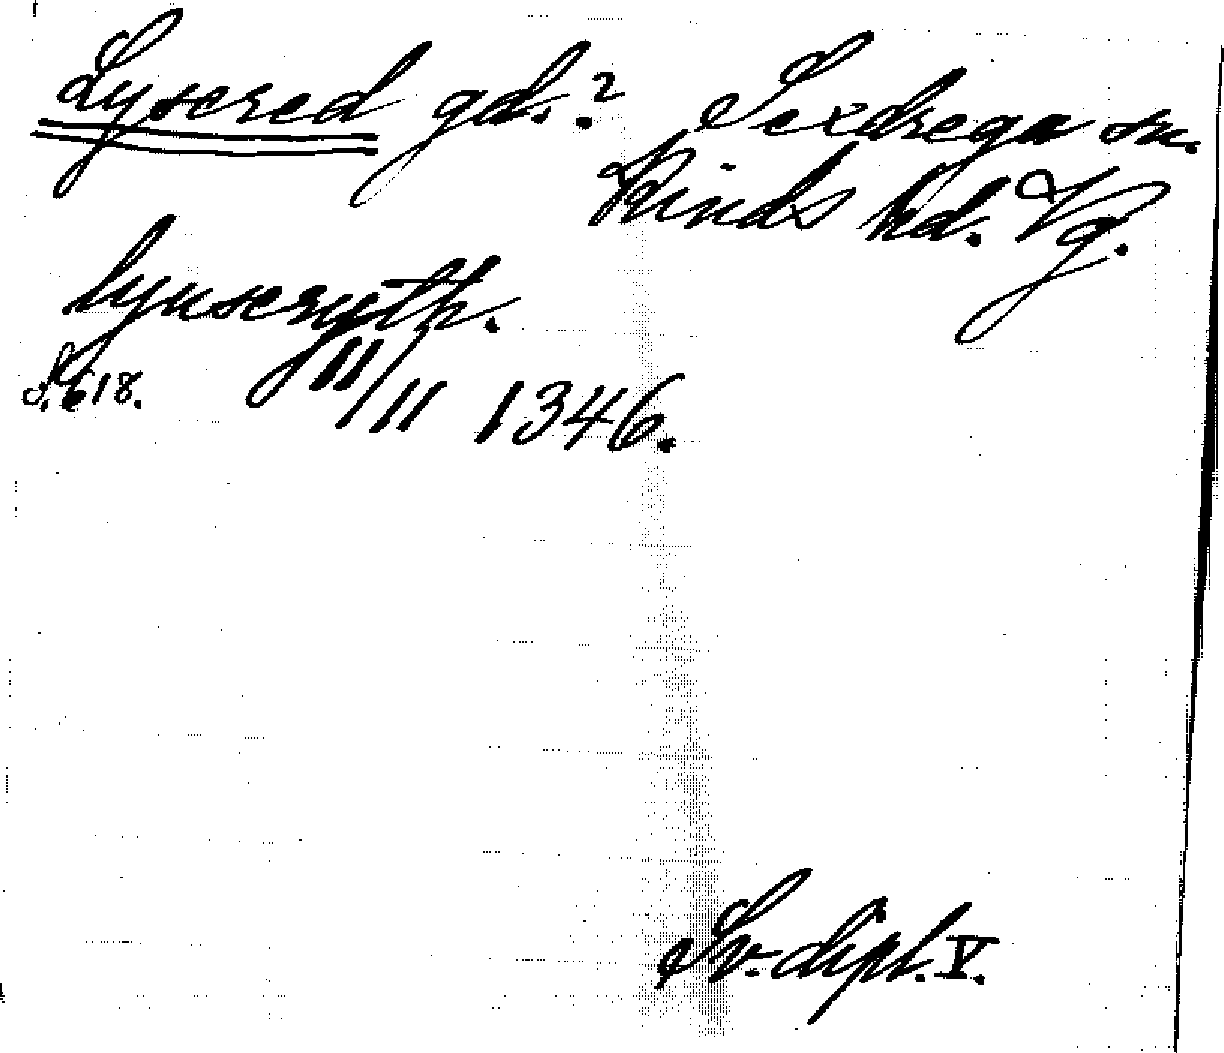 Lysered gd.? Sexdrega sn.
Kinds hd. Vg.
lynserythr.
s. 618. 11/11 1346.
Sv. dipl. V.